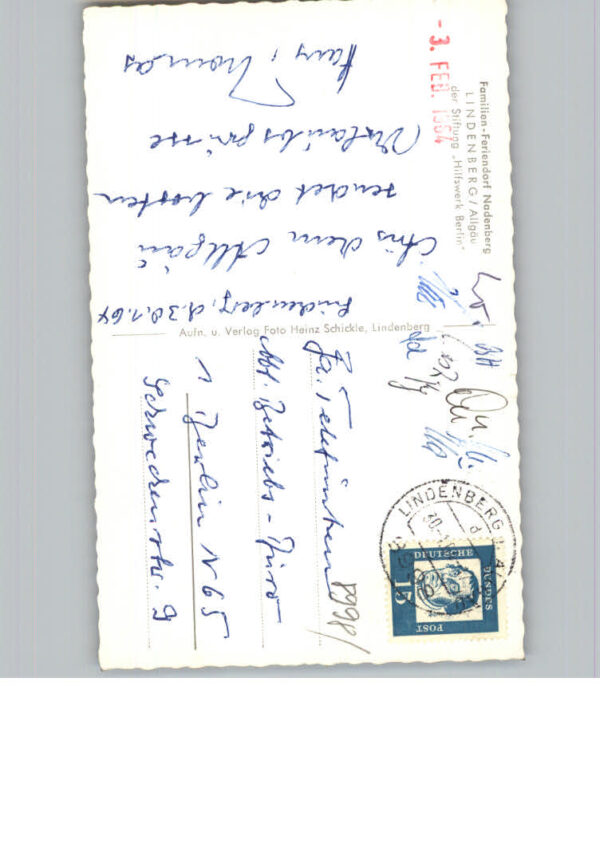 Familien-Feriendorf Nadenberg
LINDENBERG / Allgäu
der Stiftung „Hilfswerk Berlin"
-3. FEB. 1964
Lindenberg, d. 30.1.64
Aus dem Allgäu
sendet die besten
Urlaubsgrüsse
Aufn. u. Verlag Foto Heinz Schickle, Lindenberg
Fa. Telefunken
Abt. Betriebs-Büro
1 Berlin N 65
Schwedenstr. 9
LINDENBERG
DEUTSCHE
BUNDES
POST
15